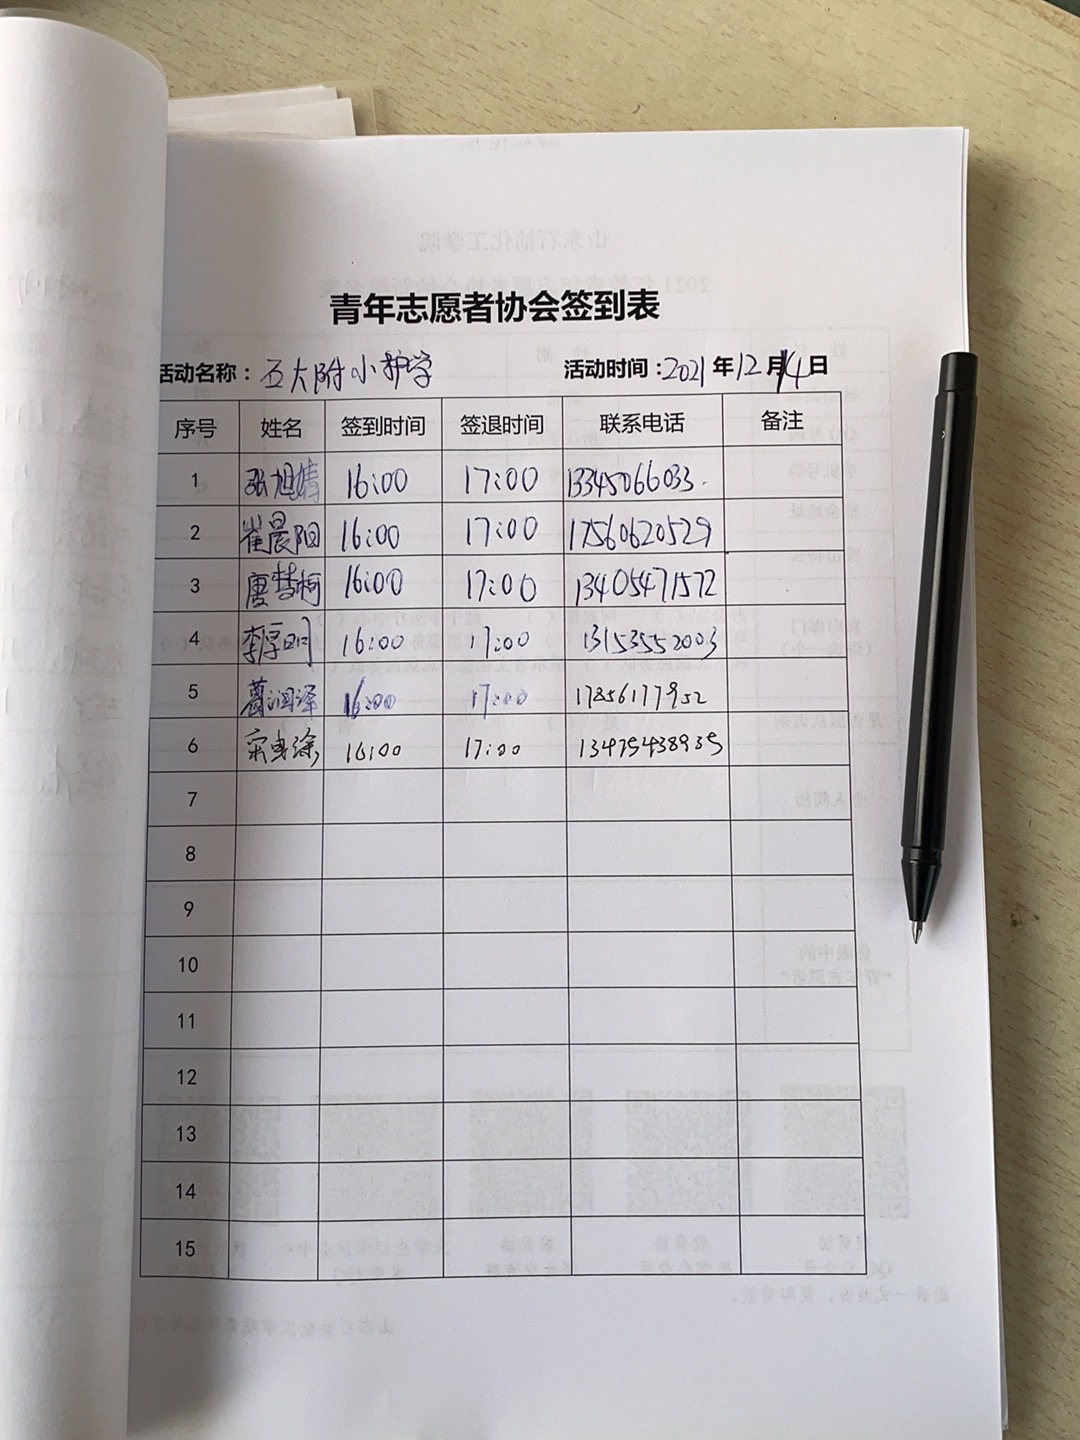 青年志愿者协会签到表
活动名称：石大附小护学 活动时间：2021年12月14日
序号 姓名 签到时间 签退时间 联系电话 备注
1 张旭婧 16:00 17:00 13345066033
2 崔晨阳 16:00 17:00 17560620529
3 唐梦柯 16:00 17:00 13405471572
4 16:00 17:00 13153552003
5 葛润泽 16:00 17:00 17856177952
6 16:00 17:00 13475438935
7
8
9
10
11
12
13
14
15